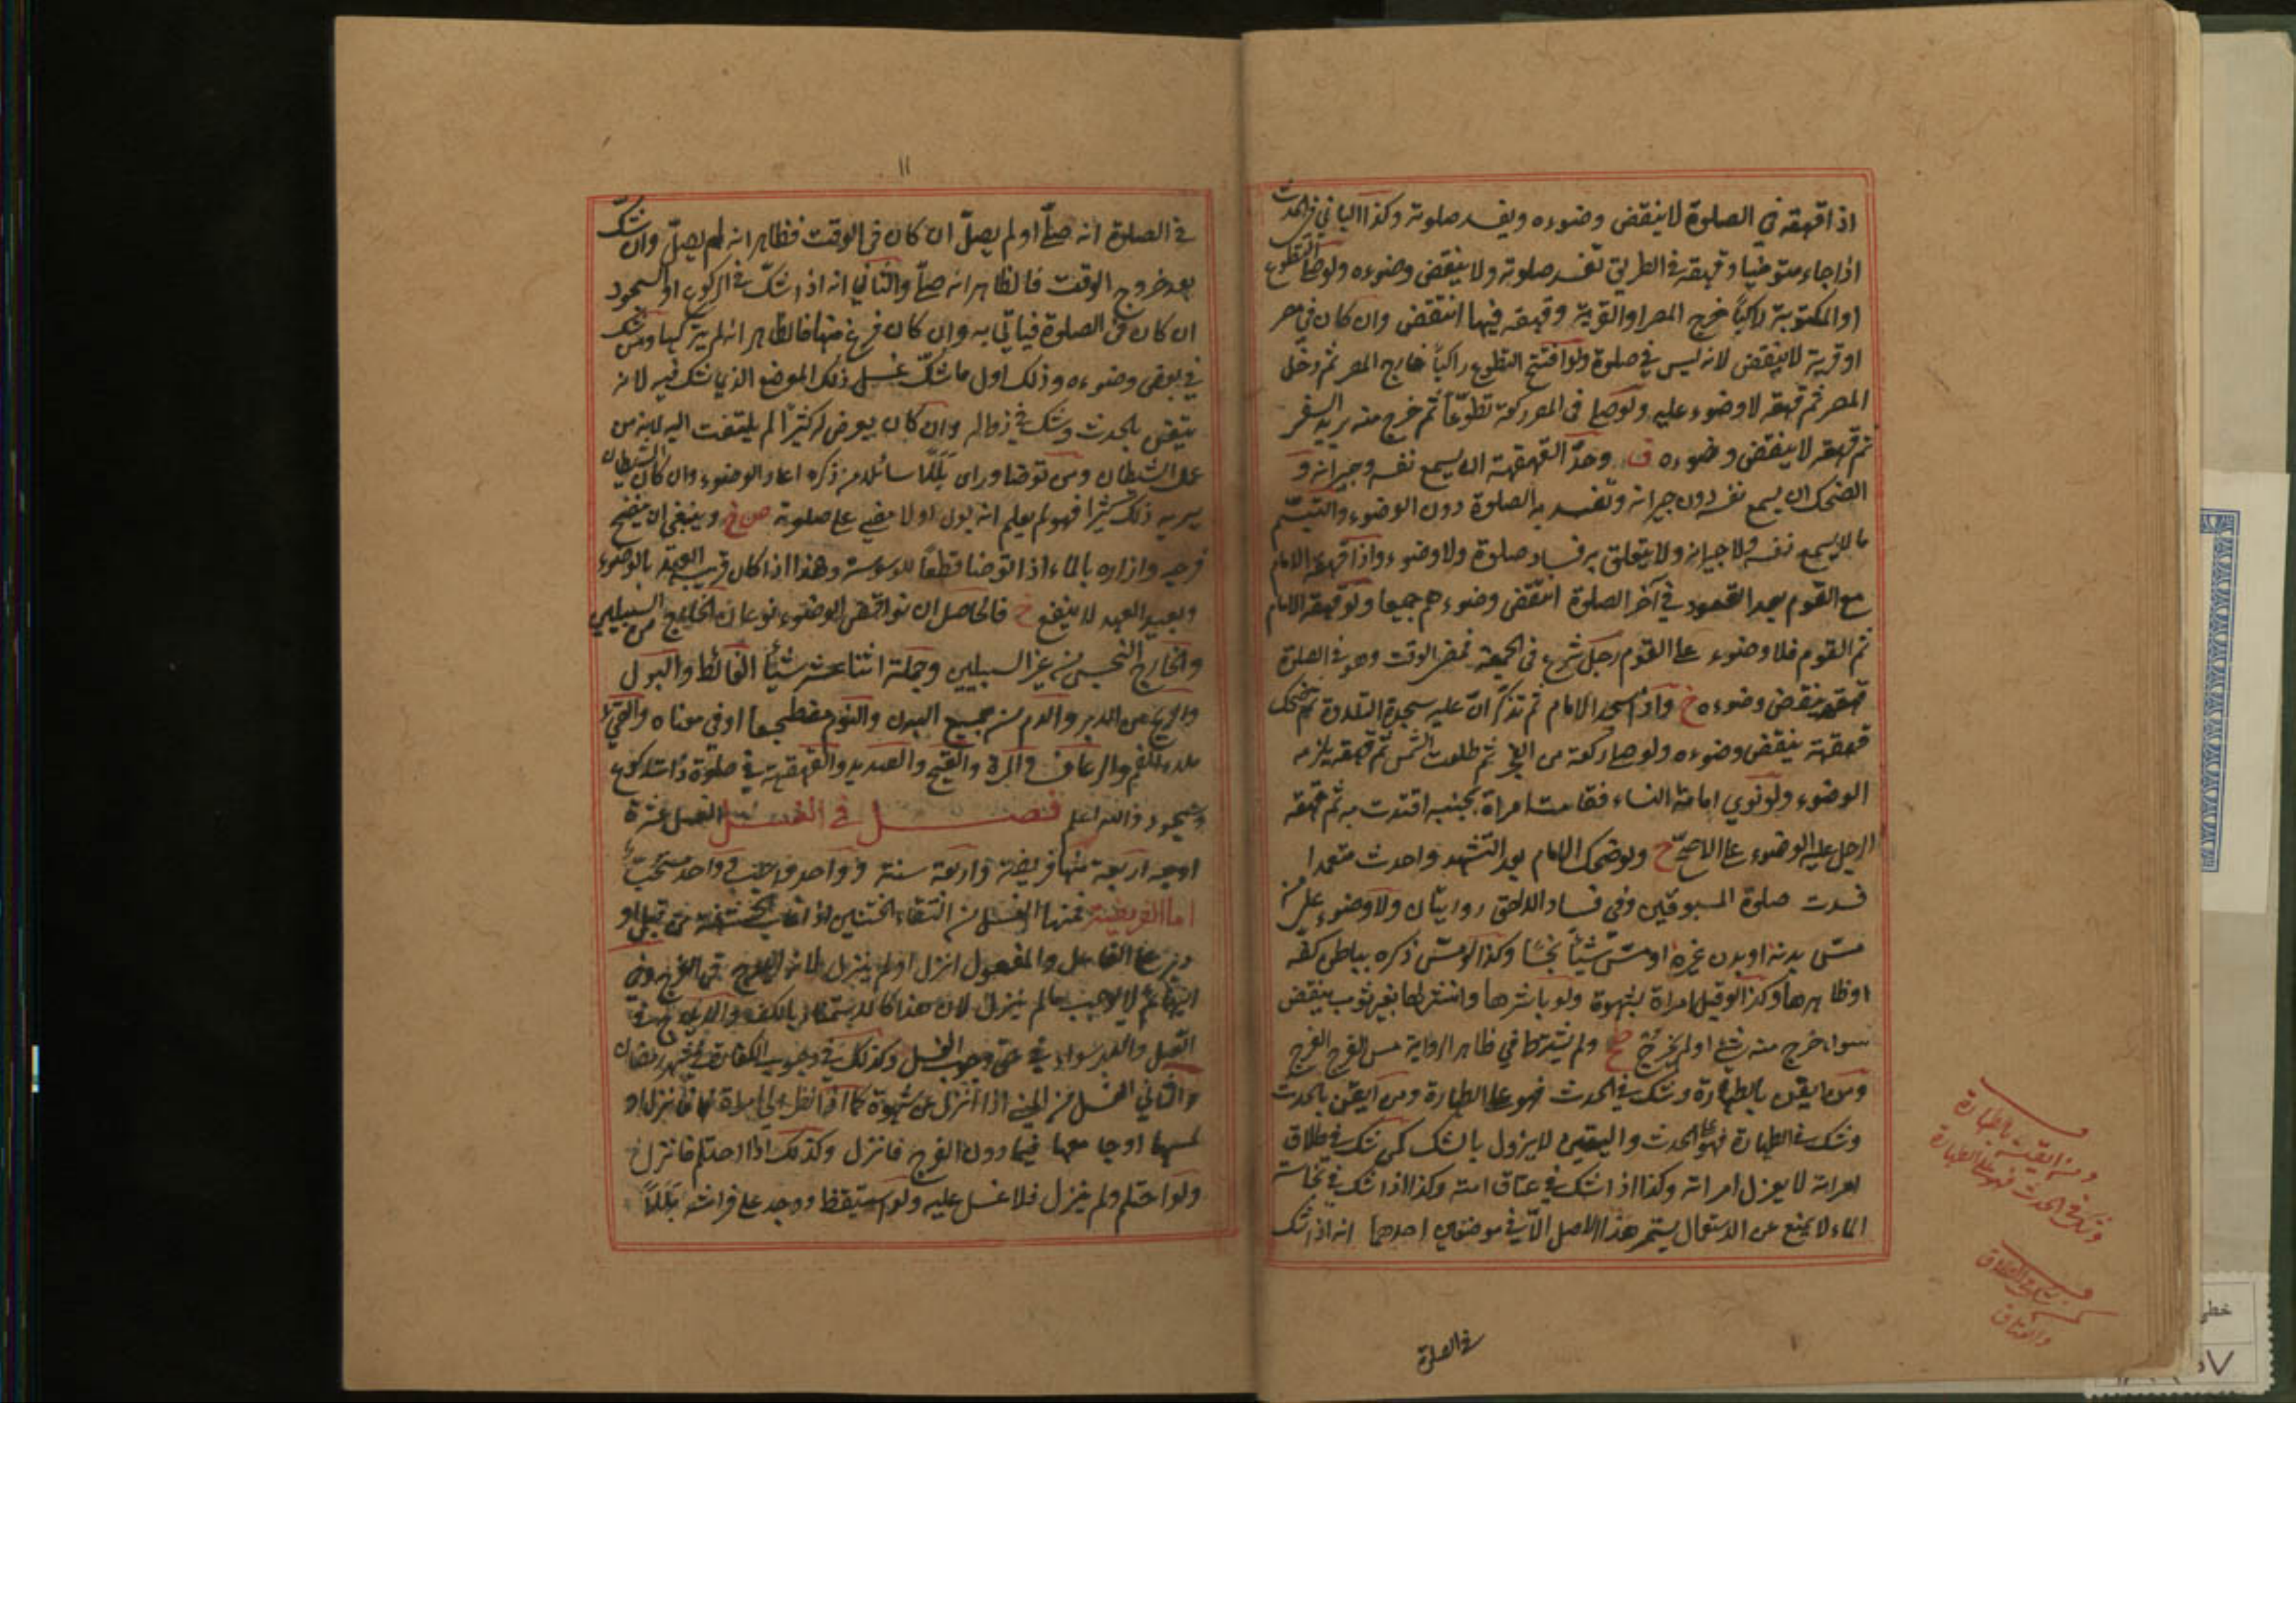 اذا قهقه في الصلوة لا ينقض وضوءه ويفسد صلوته وكذا الباني في الحدث
اذا جاء متوضيا وقهقه في الطريق تفسد صلوته ولا ينقض وضوءه ولو صلى التطوع
او المكتوبة راكبا خرج المصر او القرية وقهقه فيها انتقض وان كان في مصر
او قرية لا ينقض لانه ليس في صلوة ولو افتتح التطوع راكباً خارج المصر ثم دخل
المصر ثم قهقه لا وضوء عليه ولو صلى في المصر ركعة تطوعاً ثم خرج منه يريد السفر
ثم قهقه لا ينقض وضوءه ق وحدّ القهقهة ان يسمع نفسه وجيرانه و
الضحك ان يسمع نفسه دون جيرانه وتفسد به الصلوة دون الوضوء والتبسّم
ما لا يسمع نفسه ولا جيرانه ولا يتعلق به فساد صلوة ولا وضوء واذا قهقه الامام
مع القوم بعد القعود في آخر الصلوة انتقض وضوءهم جميعا ولو قهقه الامام
ثم القوم فلا وضوء على القوم رجل شرع في الجمعة فمضى الوقت وهو في الصلوة
قهقه ينقض وضوءه خ واذا سجد الامام ثم تذكر ان عليه سجدة التلاوة ثم ضحك
قهقهة ينقض وضوءه ولو صلى ركعة من الفجر ثم طلعت الشمس ثم قهقه يلزمه
الوضوء ولو نوى امامة النساء فقامت امراة بجنبه اقتدت به ثم قهقه
الرجل عليه الوضوء على الاصحّ خ ولو ضحك الامام بعد التشهد واحدث متعمدا
فسدت صلوة المسبوقين وفي فساد اللاحق روايتان ولا وضوء على من
مسّ بدنه او بدن غيره او مسّ شيئاً نجسا وكذا لو مسّ ذكره بباطن كفه
او ظاهرها وكذا لو قبل امراة بشهوة ولو باشرها وانتشر لها بغير ثوب ينقض
سواء خرج منه شيء او لم يخرج صح ولم يشترط في ظاهر الرواية مس الفرج الفرج
ومن ايقن بالطهارة وشك في الحدث فهو على الطهارة ومن ايقن بالحدث
وشك في الطهارة فهو على الحدث واليقين لا يزول بالشك كمن شك في طلاق
امراته لا يعزل امراته وكذا اذا شك في عتاق امته وكذا اذا شك في نجاسة
الماء لا يمنع عن الاستعمال يستمر هذا الاصل الّا في موضعين احدهما انه اذا شك
ومن ايقن بالطهارة
وشك في الحدث فهو على الطهارة
شك في الطلاق
والعتاق
في الصلوة
١١
في الصلوة انه صلّى او لم يصلّ ان كان في الوقت فظاهر انه لم يصلّ وان شكّ
بعد خروج الوقت فالظاهر انه صلّى والثاني انه اذا شكّ في الركوع او السجود
ان كان في الصلوة فياتي به وان كان فرغ منها فالظاهر انه لم يتركها ومن شك
في بعض وضوءه وذلك اول ما شكّ غسل ذلك الموضع الذي شك فيه لانه
تيقن بالحدث وشك في زواله وان كان يعرض له كثيرًا لم يلتفت اليه لانه من
عمل الشيطان ومن توضا وراى بللًا سائلا من ذكره اعاد الوضوء وان كان الشيطان
يريه ذلك كثيرًا فهو لم يعلم انه بول او لا مضى على صلوته ص خ وينبغي ان ينضح
فرجه وازاره بالماء اذا توضا قطعًا للوسوسة وهذا اذا كان قريب العهد بالوضوء
وبعيد العهد لا ينفع خ فالحاصل ان نواقض الوضوء نوعان الخارج من السبيلين
والخارج النجس من غير السبيلين وجملته اثنا عشر شيئًا الغائط والبول
والريح من الدبر والدم من جميع البدن والنوم مضطجعا او في معناه والقيء
ملء الفم والرعاف والمرة والقيح والصديد والقهقهة في صلوة ذات ركوع
وسجود والله اعلم فصل في الغسل الغسل عشرة
اوجه اربعة منها فريضة واربعة سنة وواحد واجب وواحد مستحب
اما الفريضة فمنها الغسل من التقاء الختنين اذا غابت الحشفة من قبل او
دبر على الفاعل والمفعول انزل او لم ينزل لانه الايلاج في الفرج وفي
البهائم لا يجب ما لم ينزل لان هذا كالاستمتاع بالكف والايلاج في
القبل والدبر سواء في حق وجوب الغسل وكذلك في وجوب الكفارة في شهر رمضان
والثاني الغسل من المني اذا انزل عن شهوة كما اذا نظر الى امراة فانزل او
لمسها او جامعها فيما دون الفرج فانزل وكذلك اذا احتلم فانزل خ
ولو احتلم ولم ينزل فلا غسل عليه ولو استيقظ ووجد على فراشه بللاً